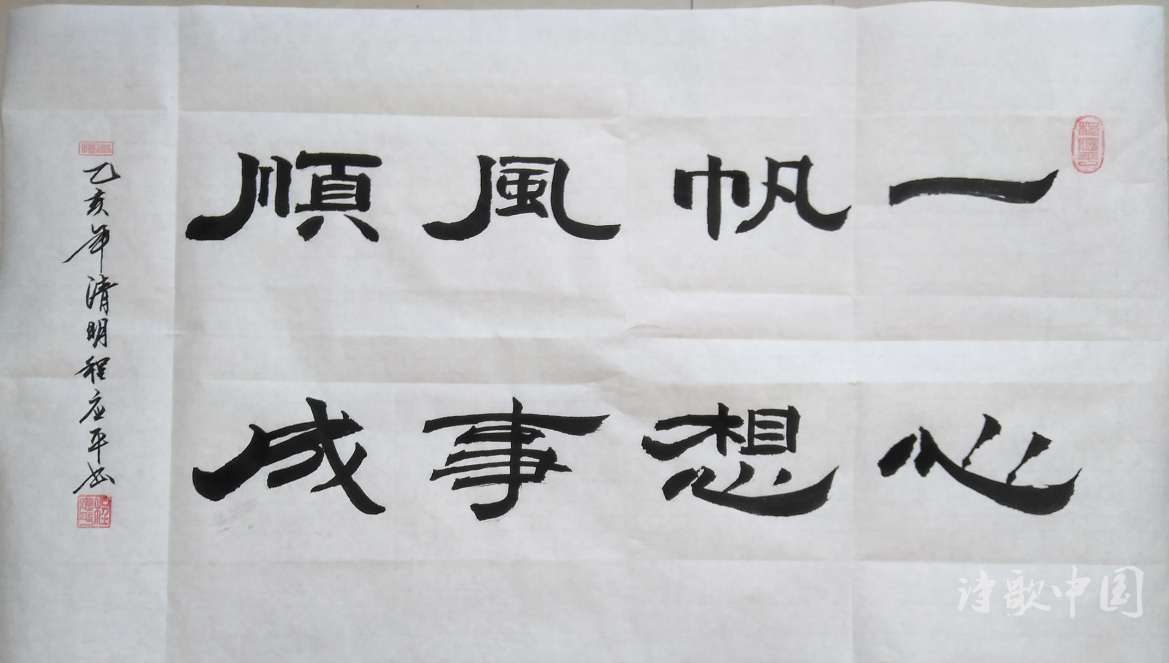 一帆風順
心想事成
乙亥年清明程应平书
诗歌中国